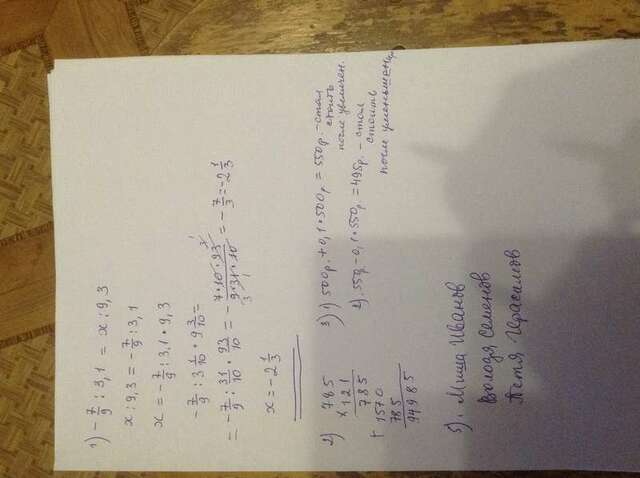 1) - 7/9 : 3,1 = x : 9,3
x : 9,3 = - 7/9 : 3,1
x = - 7/9 : 3,1 • 9,3
- 7/9 : 3 1/10 • 9 3/10 =
= - 7/9 : 31/10 • 93/10 = - 7•10•93/9•31•10 = - 7/3 = -2 1/3
x = -2 1/3
2) 785
x 121
785
+ 1570
785
94985
3) 1) 500р. + 0,1•500р. = 550р. - стал
стоить
после увеличен.
2) 550 - 0,1•550р. = 495р. - стал
стоить
после уменьшения
5). Миша Иванов
Володя Семенов
Петя Герасимов